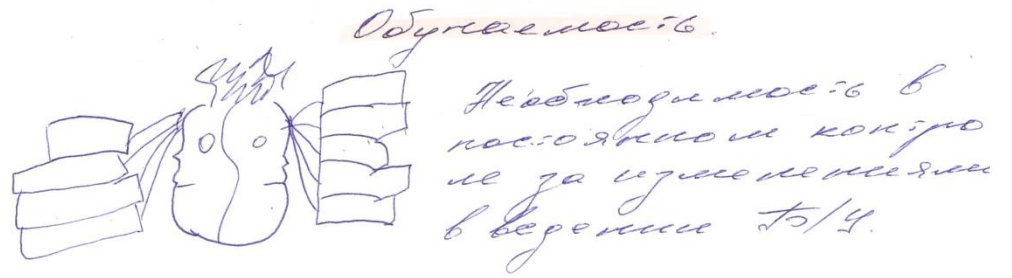 Обучаемость.
Необходимость в
постоянном контро
ле за изменениями
в ведении Б/У.